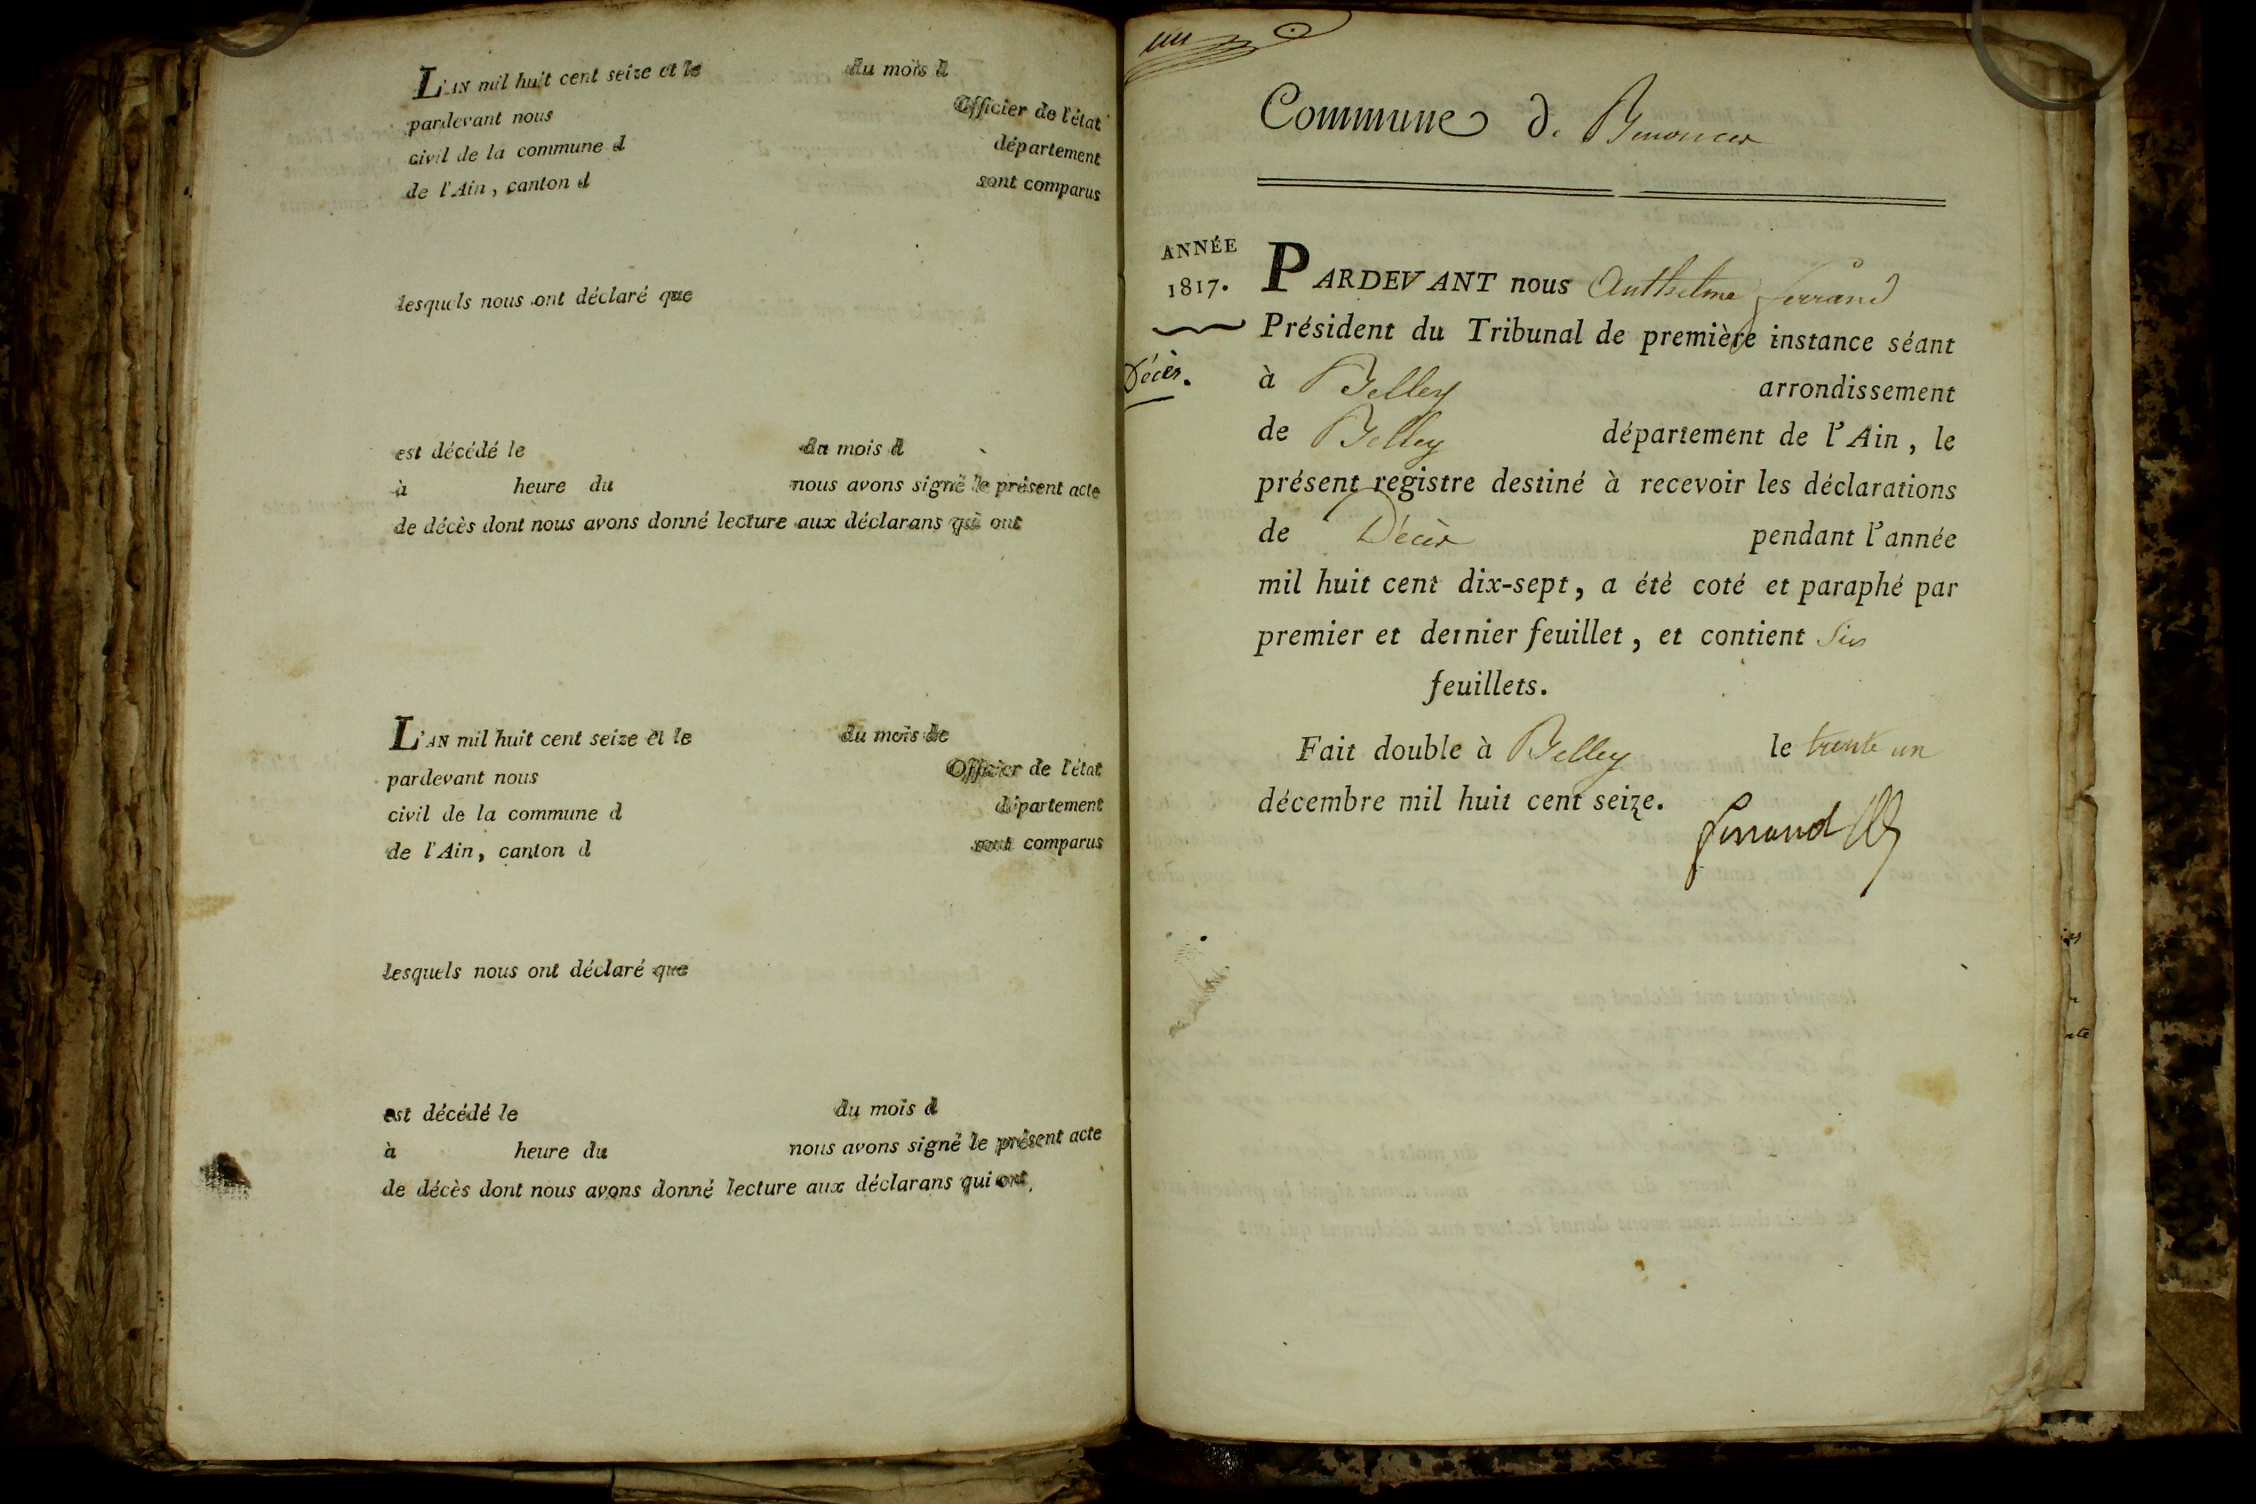 L'AN mil huit cent seize et le du mois d
pardevant nous Officier de l'état
civil de la commune d département
de l'Ain, canton d sont comparus
lesquels nous ont déclaré que
est décédé le du mois d
à heure du nous avons signé le présent acte
de décès dont nous avons donné lecture aux déclarans qui ont
L'AN mil huit cent seize et le du mois de
pardevant nous Officier de l'état
civil de la commune d département
de l'Ain, canton d sont comparus
lesquels nous ont déclaré que
est décédé le du mois d
à heure du nous avons signé le présent acte
de décès dont nous avons donné lecture aux déclarans qui ont
Commune d.
ANNÉE
1817.
Décès.
PARDEVANT nous Anthelme ferrand
Président du Tribunal de première instance séant
à Belley arrondissement
de Belley département de l'Ain, le
présent registre destiné à recevoir les déclarations
de Décès pendant l'année
mil huit cent dix-sept, a été coté et paraphé par
premier et dernier feuillet, et contient Six
feuillets.
Fait double à Belley le trente un
décembre mil huit cent seize.
ferrand